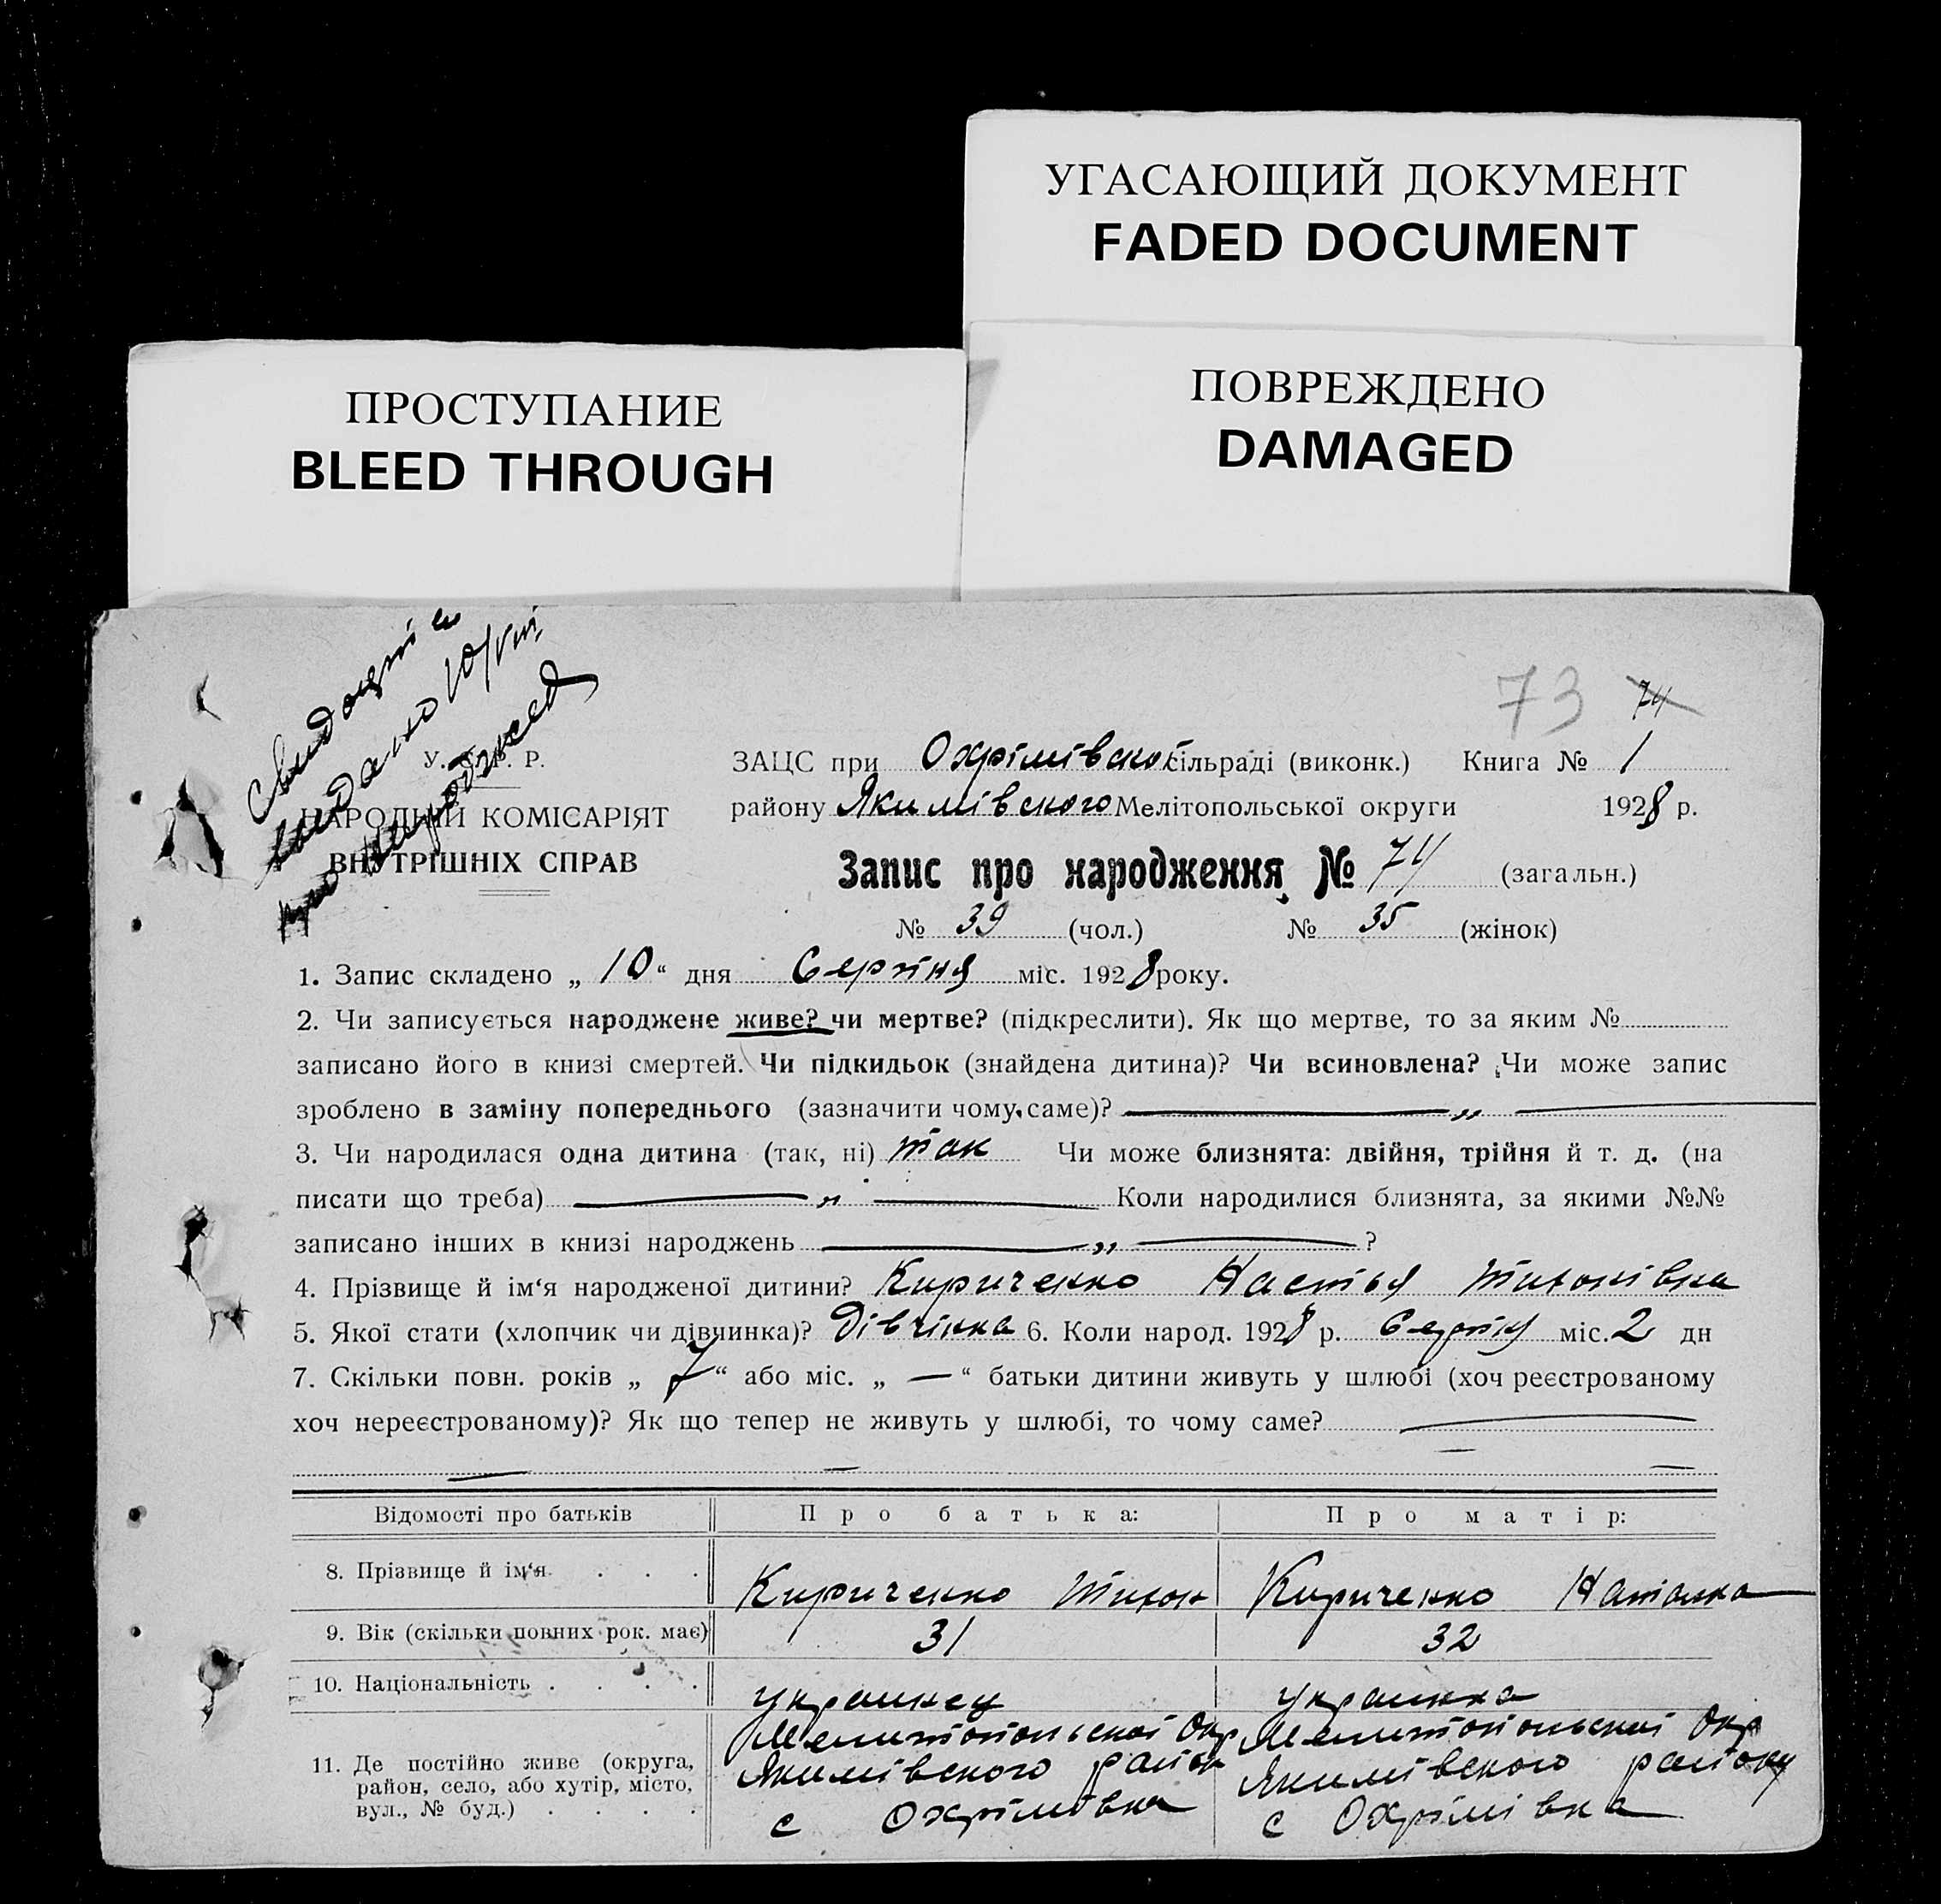 УГАСАЮЩИЙ ДОКУМЕНТ
FADED DOCUMENT
ПРОСТУПАНИЕ
BLEED THROUGH
ПОВРЕЖДЕНО
DAMAGED
видано 10/VIII
про
73 74
У. Р.
НАРОДНІЙ КОМІСАРІЯТ
ВНУТРІШНІХ СПРАВ
ЗАЦС при Охрімівской сільраді (виконк.) Книга № 1
району Якимівского Мелітопольської округи 1928 р.
Запис про народження № 74 (загальн.)
№ 39 (чол.) № 35 (жінок)
1. Запис складено „ 10 “ дня Серпня міс. 1928 року.
2. Чи записується народжене живе? чи мертве? (підкреслити). Як що мертве, то за яким №
записано його в книзі смертей. Чи підкидьок (знайдена дитина)? Чи всиновлена? Чи може запис
зроблено в заміну попереднього (зазначити чому, саме)? — „ —
3. Чи народилася одна дитина (так, ні) так Чи може близнята: двійня, трійня й т. д. (на
писати що треба) — „ — Коли народилися близнята, за якими №№
записано інших в книзі народжень — „ — ?
4. Прізвище й ім‘я народженої дитини? Кириченко Настья Тихонівна
5. Якої стати (хлопчик чи дівчинка)? Дівчінка 6. Коли народ. 1928 р. Серпня міс. 2 дн
7. Скільки повн. років „ 7 “ або міс. „ — “ батьки дитини живуть у шлюбі (хоч реєстрованому
хоч нереєстрованому)? Як що тепер не живуть у шлюбі, то чому саме? —
Відомості про батьків Про батька: Про матір:
8. Прізвище й ім‘я . . . Кириченко Тихон Кириченко Наталка
9. Вік (скільки повних рок. має) 31 32
10. Національність . . . . украинец украинка
11. Де постійно живе (округа, район, село, або хутір, місто, вул., № буд.) . . . .
Мелитопольскої Окр Мелитопольскиї Окр
Якимівского район Якимівского району
с Охрімовка с Охрімівка